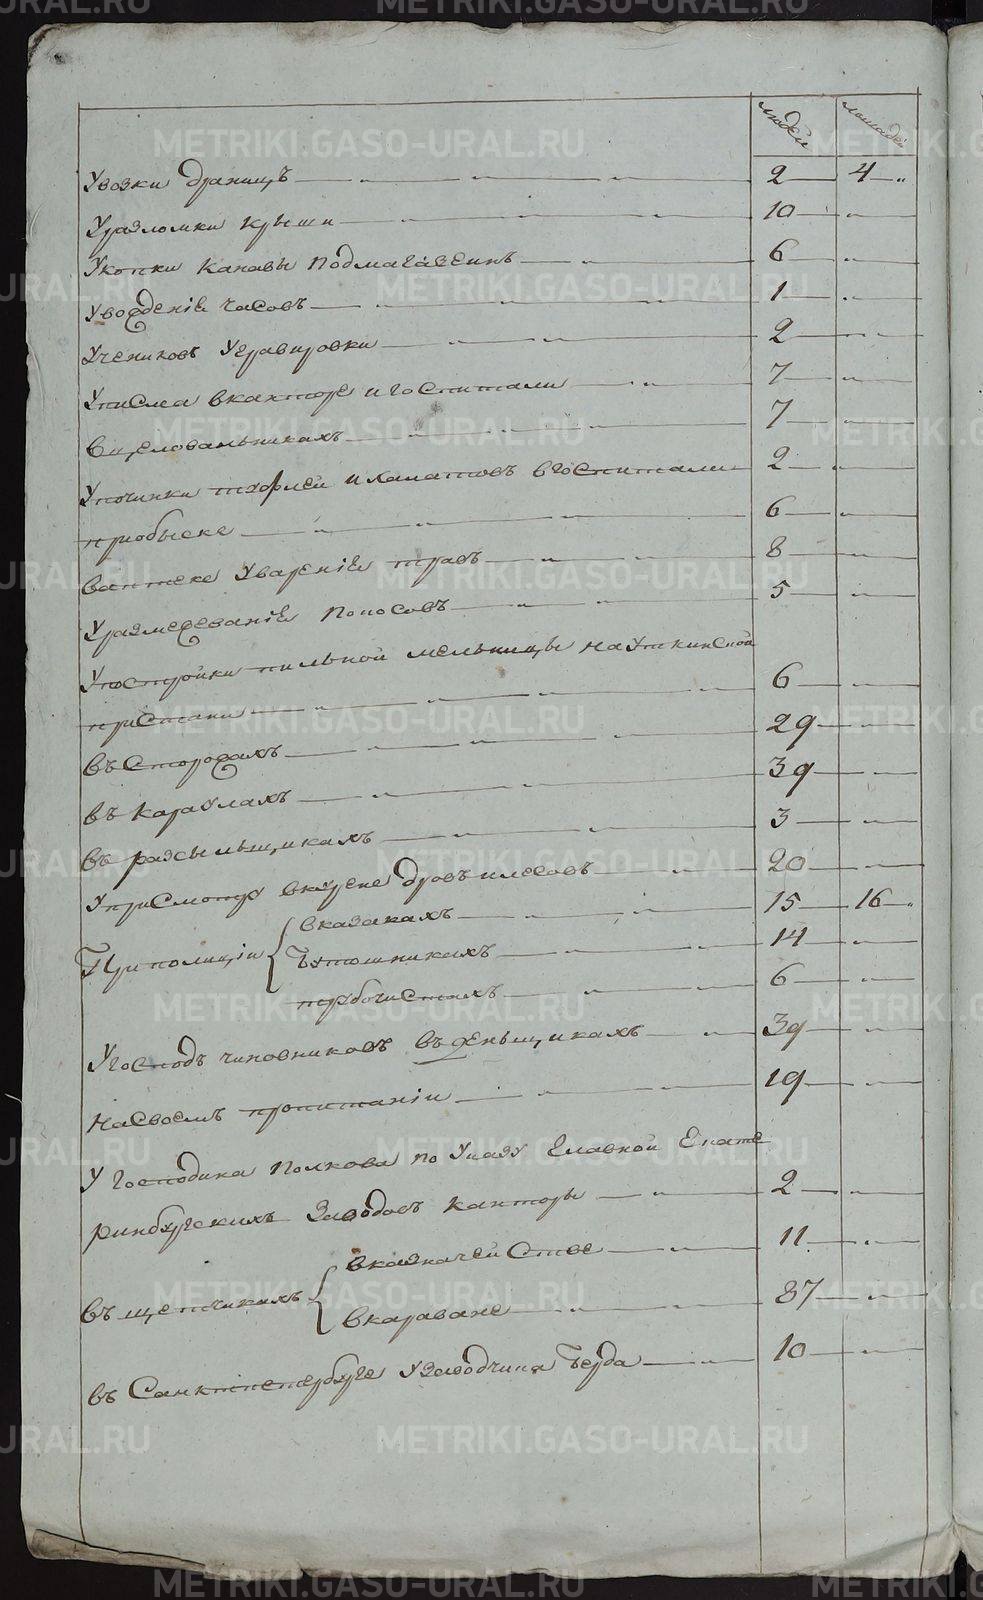 людей лошадей
Увозки драницъ — „ — „ — „ — 2 — 4 — „
Уразломки крыши — „ — „ — „ — 10 — „
Укопки канавы подмагазеинъ — „ — 6 — „
Уводенiи часовъ — „ — „ — „ — 1 — „
Учениковъ Уgравировки — „ — „ — 2 — „
Уписма вканторе игоспитали — „ — 7 — „
Вцеловальникахъ — „ — „ — „ — 7 — „
Упочинки туфлей ихалатовъ вгоспитали — 2 — „
приобыске — „ — „ — „ — 6 — „
ваптеке Уваренiи травъ — „ — „ — 8 — „
Уразмежеванiи покосовъ — „ — „ — 5 — „
Упостройки пильной мельницы наУткинской
пристани — „ — „ — „ — 6 — „
въ Сторожахъ — „ — „ — „ — 29 — „
въ караулахъ — „ — „ — „ — 39 — „
въ разсыльщикахъ — „ — „ — 3 — „
Уприсмотру вкурене дровъ илесовъ — „ — 20 — „
вказакахъ — „ — „ — 15 — 16 — „
Приполицiи
Бутошникахъ — „ — „ — 14 — „
трубочистахъ — „ — „ — 6 — „
Угосподъ чиновниковъ въ деньщикахъ — „ — 39 — „
насвоемъ пропитанiи — „ — „ — 19 — „
У Господина Полкова по Указу Главной Екате
ринбургскихъ Заводовъ Канторы — „ — 2 — „
вказначействе — „ — 11 — „
въ щетчикахъ
вкараване — „ — „ — 87 — „
въ Санктпетербурге Узаводчика Берда — „ — 10 — „
METRIKI.GASO-URAL.RU